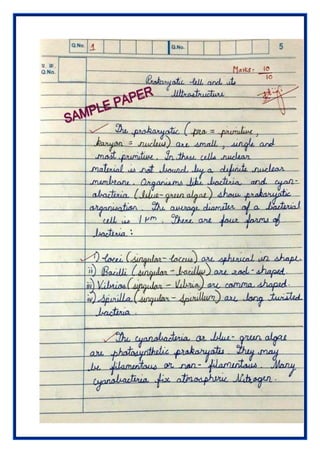 Q.No. 1 Q.No. 5
Q.No.
Marks - 10/10
Prokaryotic cell and its
Ultrastructure
SAMPLE PAPER
The prokaryotic (pro = primitive,
karyon = nucleus) are small, single and
most primitive. In these cells nuclear
material is not bound by a definite nuclear
membrane. Organisms like bacteria and cyan-
obacteria (blue-green algae) show prokaryotic
organisation. The average diameter of a bacterial
cell is 1 µm. There are four forms of
bacteria:
i) Cocci (singular - coccus) are spherical in shape.
ii) Bacilli (singular - bacillus) are rod-shaped.
iii) Vibrios (singular - Vibrio) are comma shaped.
iv) Spirilla (singular - Spirillum) are long twisted
bacteria.
The cyanobacteria or blue-green algae
are photosynthetic prokaryotes. They may
be filamentous or non-filamentous. Many
cyanobacteria fix atmospheric Nitrogen.